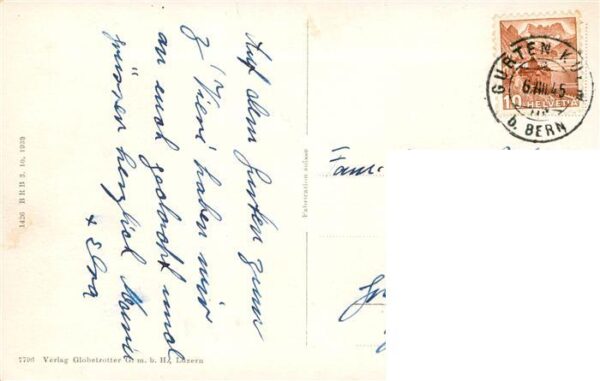 Auf dem Gurten zum
Z'Vieri haben wir
an euch gedacht und
grüssen herzlich
+ Elsa
1426 BRB 3. 10. 1939
7796 Verlag Globetrotter G. m. b. H., Luzern
Fabrication suisse
GURTEN KULM
6.VIII.45
b. BERN
10 HELVETIA
Fam.